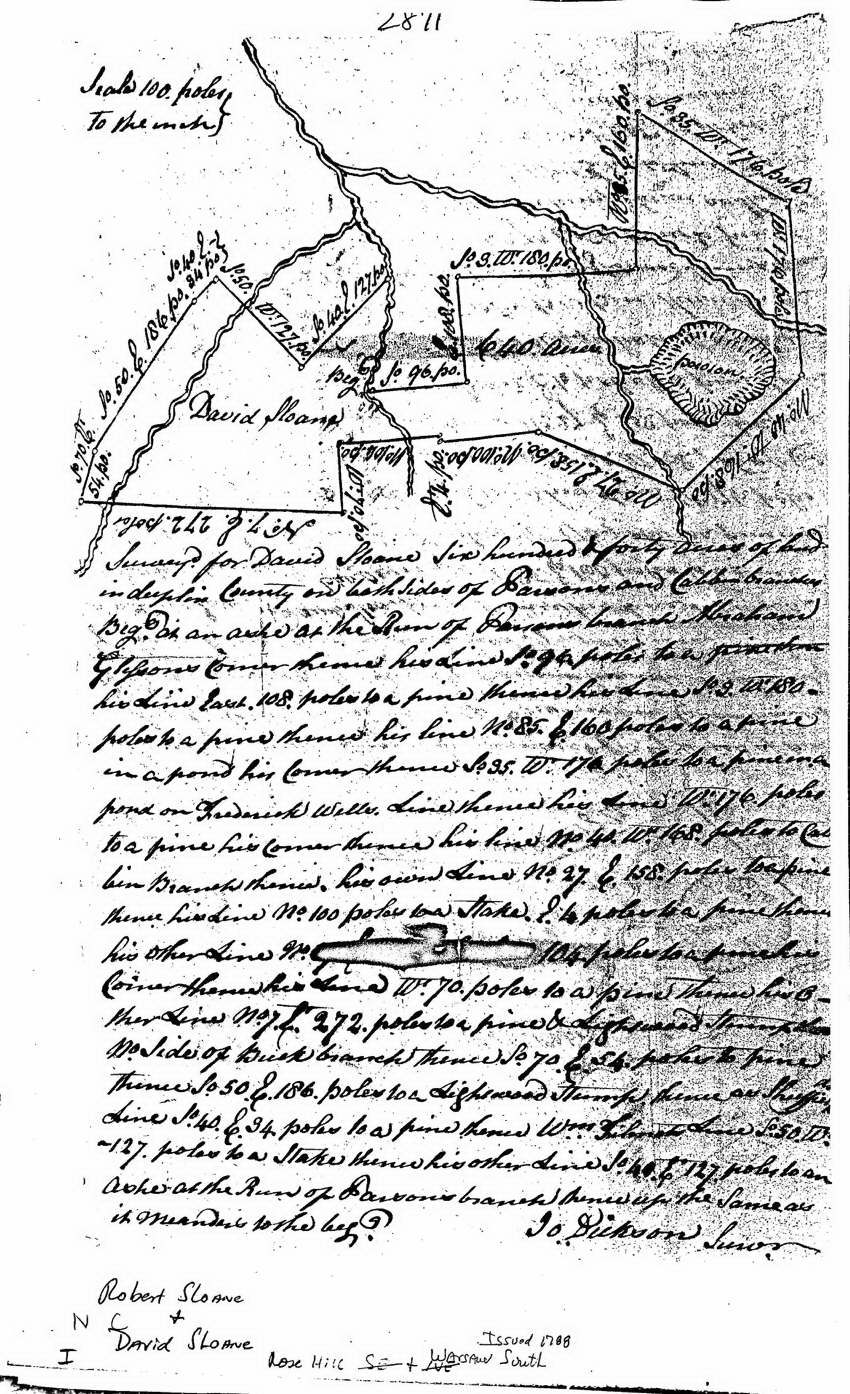 2871
Scale 100. poles
To the inch
So. 35. Wt. 176. pole
No. 85. E 160. po.
Wt. 176 poles
So. 40. E
34. po.
So. 50.
Wt. 127. po.
So. 40. E 127. po
So. 3. Wt. 180. po
E. 108. po.
640 acres
pocoson
So. 50. E. 186. po.
Beg.
So 96. po.
David Sloane
So. 70. E
54. po.
No. 104. po
E. 4. po.
No. 100. po
No. 27. E. 158. po
No. 40. Wt. 168. po
Wt. 70. po
No. 7. E. 272. poles
Survey'd for David Sloane Six hundred & forty acres of land
in duplin County on both sides of Parsons and Cabbin branches
Beg. at an ashe at the Run of Parsons branch Abraham
Glissons Corner thence his Line So. 96 poles to a
his Line East. 108. poles to a pine thence his Line So. 3. Wt. 180 -
poles to a pine thence his line No. 85. E 160 poles to a pine
in a pond his Corner thence So. 35. Wt. 176 poles to a pine in a
pond on Frederick Wells. Line thence his Line Wt. 176. poles
to a pine his Corner thence his line No. 40. Wt. 168. poles to Cab
bin Branch thence. his own Line No. 27. E. 158. poles to a pine
thence his Line No 100 poles to a Stake. E. 4 poles to a pine thence
his other Line No. 104 poles to a pine his
Corner thence his Line Wt. 70. poles to a pine thence his o-
ther Line No. 7. Et. 272. poles to a pine & Lightwood Stump
No. Side of Buck branch thence So. 70. E 54. poles to pine
thence So 50 E. 186. poles to a Lightwood Stump thence
Line So. 40. E. 34. poles to a pine thence Wm. Line So. 50. Wt.
-127. poles to a Stake thence his other Line So. 40. Et. 127. poles to an
Ashe at the Run of Parsons branch thence up the Same as
it Meanders to the beg.
Jo. Dickson Survr.
Robert Sloane
N C &
David Sloane
I
Issued 1788
Rose Hill SE + Warsaw South